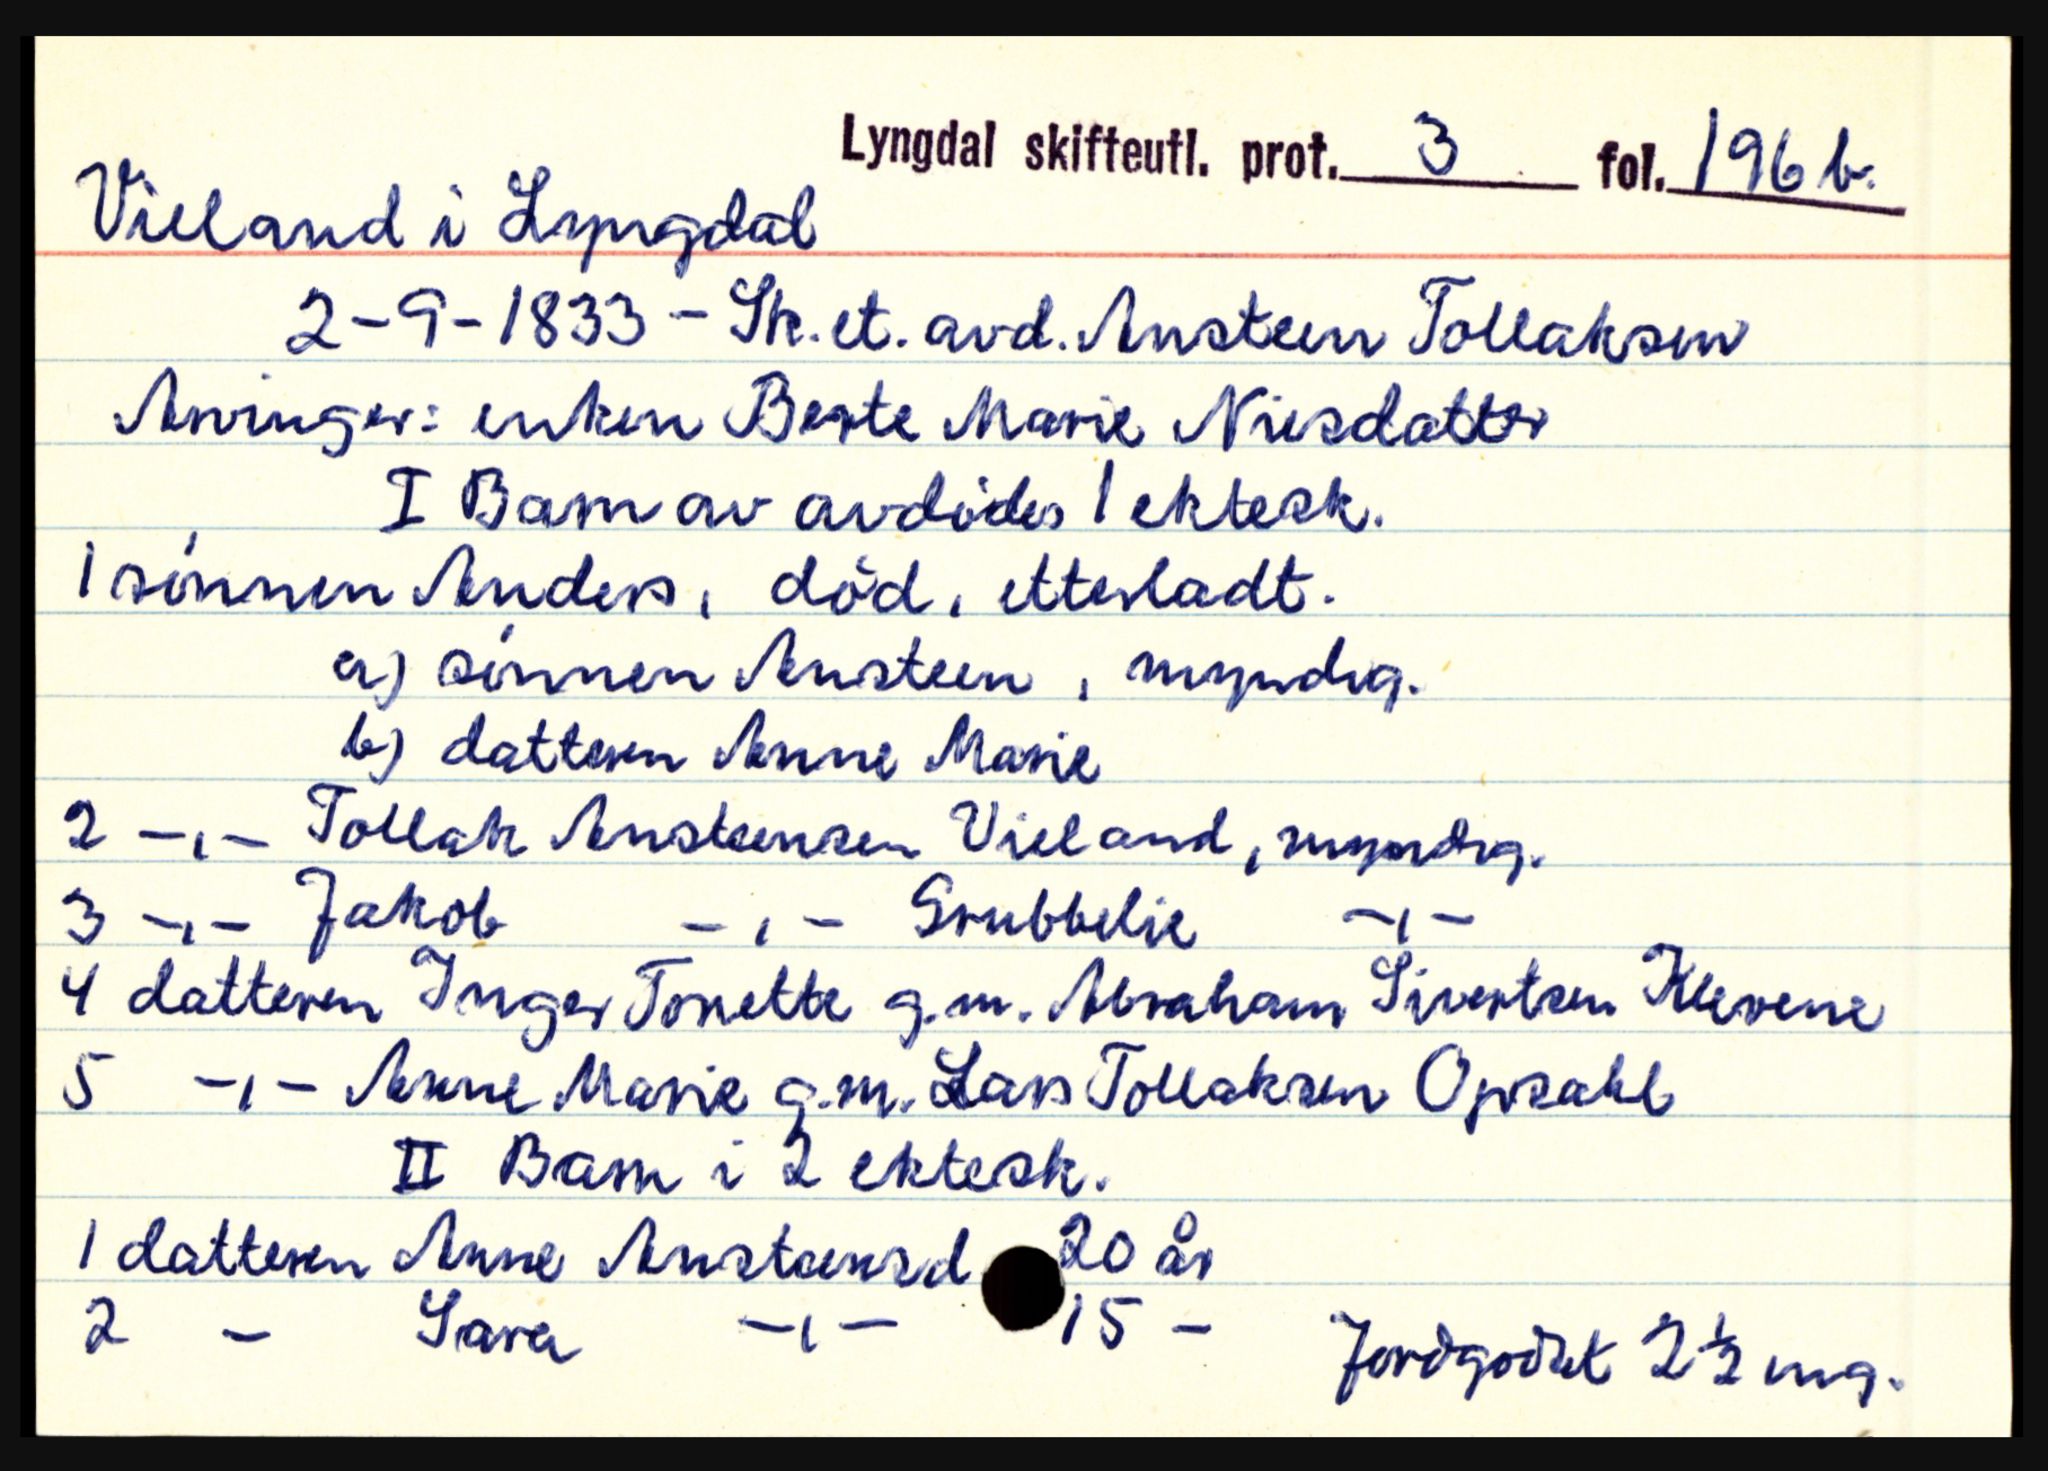 Lyngdal skifteutl. prot. 3 fol. 196 b.
Vieland i Lyngdal
2-9-1833 - Sk. et. avd. Ansteen Tollaksen
Arvinger: enken Berte Marie Niesdatter
I Barn av avdødes 1 ektesk.
1 sønnen Anders, død, etterladt.
a) sønnen Ansteen, myndig.
b) datteren Anne Marie
2 -,- Tollak Ansteensen Vieland, myndig.
3 -,- Jakob -,- Grubbelie -,-
4 datteren Inger Tonette g.m. Abraham Sivertsen Klevene
5 -,- Anne Marie g.m. Lars Tollaksen Opsahl
II Barn i 2 ektesk.
1 datteren Anne Ansteensd 20 år
2 - Sara -,- 15 -
Jordgodset 2 ½ mg.